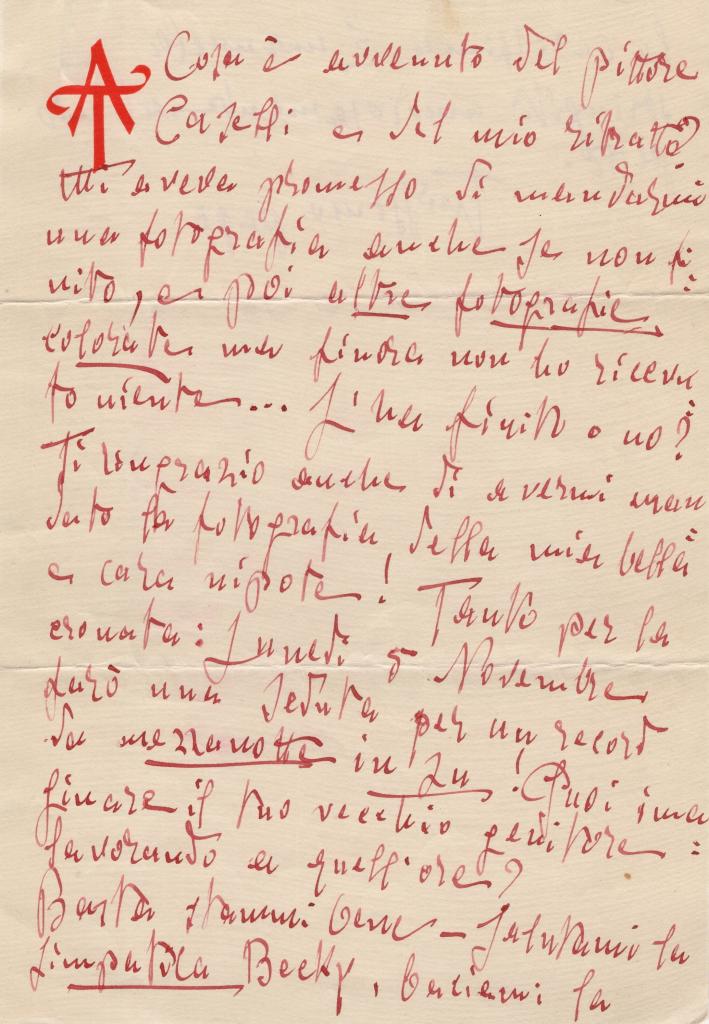 AT
Cosa è avvenuto del pittore
Caselli e del mio ritratto?
Mi aveva promesso di mandarmi
una fotografia anche se non fi=
nito, e poi altre fotografie
colorate ma finora non ho ricevu=
to niente... L'ha finito o no?
Ti ringrazio anche di avermi man=
dato la fotografia della mia bella
e cara nipote! Tanto per la
cronata: Lunedì 5 Novembre
farò una seduta per un record
da mezzanotte in su! Puoi imma
ginare il tuo vecchio genitore
lavorando a quell'ore?
Basta stammi bene - Salutami la
simpatica Becky, baciami la